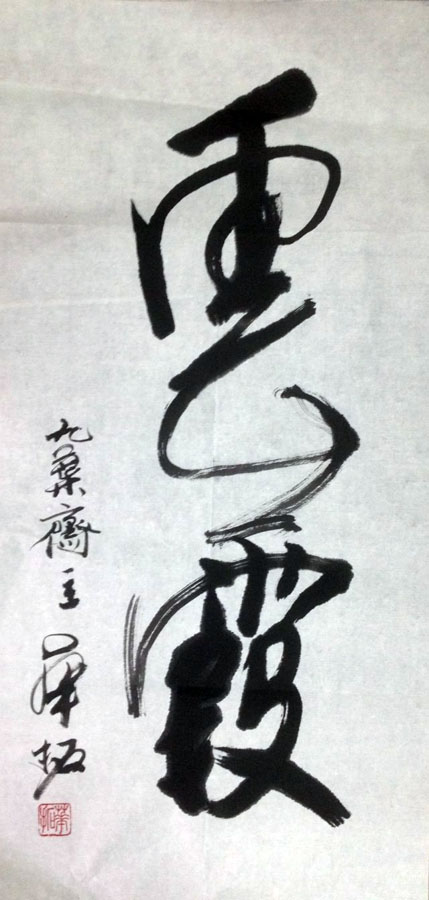 雲霞
九葉齋主